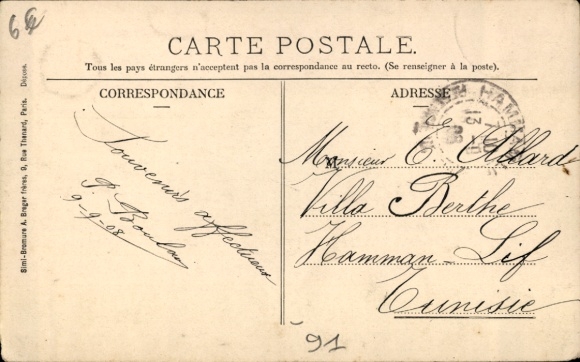 6
CARTE POSTALE.
Tous les pays étrangers n'acceptent pas la correspondance au recto. (Se renseigner à la poste).
CORRESPONDANCE
ADRESSE
Simi-Bromure A. Breger frères, 9, Rue Thenard, Paris. Déposé.
Souvenirs affectueux
9-9-08
HAMMAM
Monsieur C. Allard
Villa Berthe
Hamman-Lif
Tunisie
91